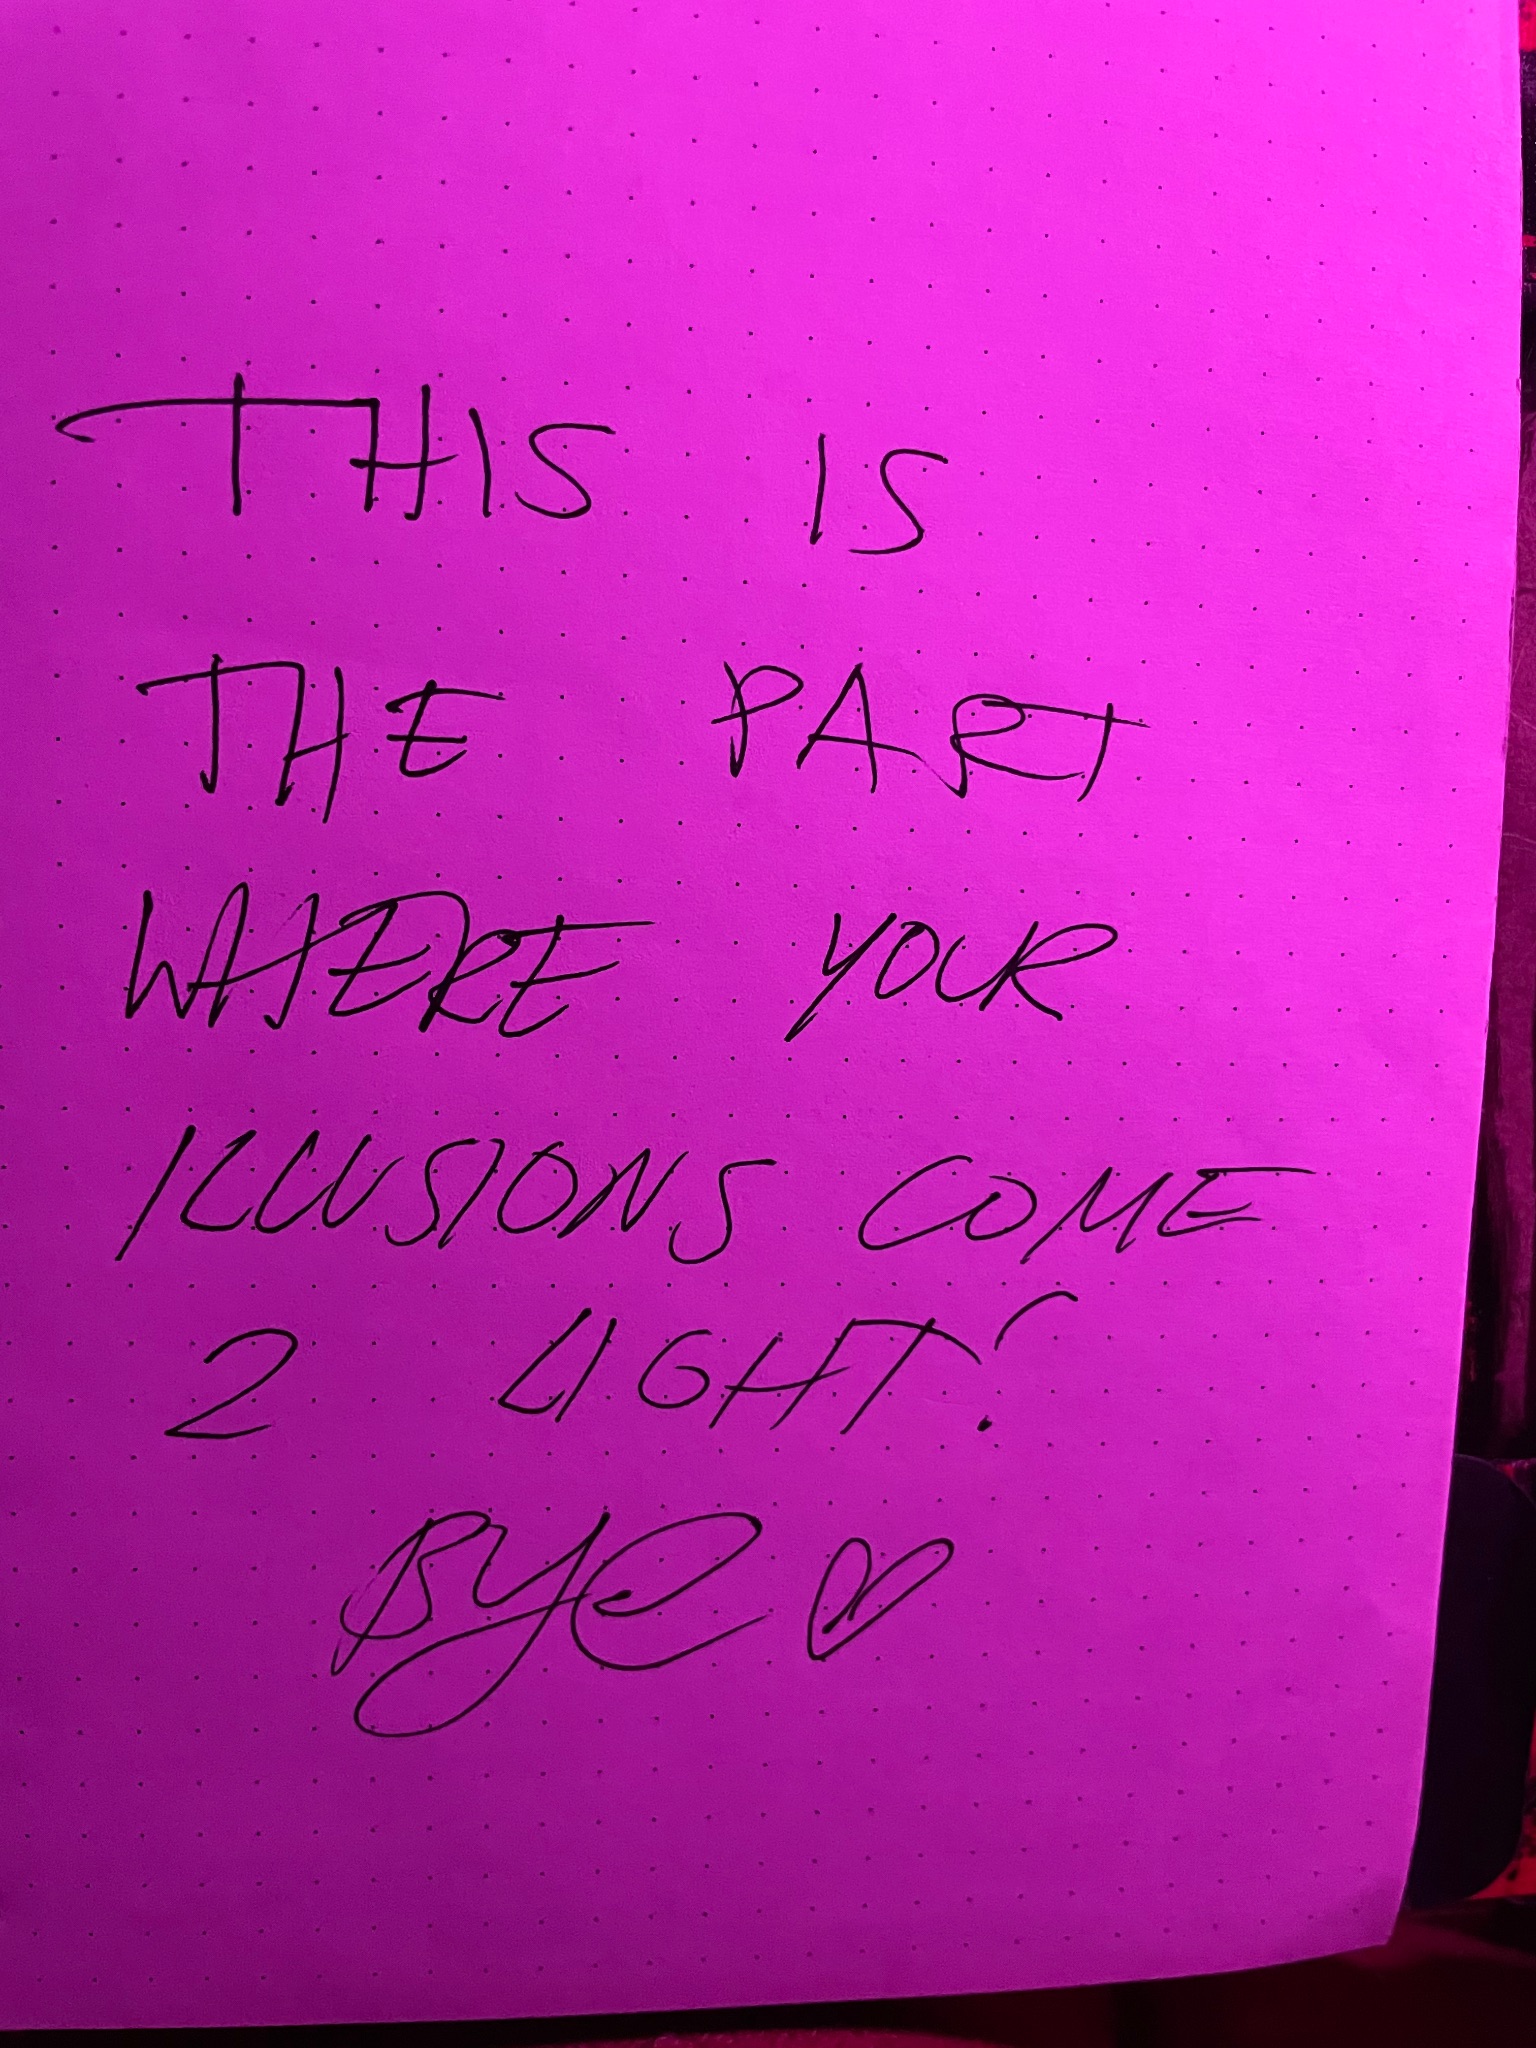 THIS IS
THE PART
WHERE YOUR
ILLUSIONS COME
2 LIGHT!
Bye ♡